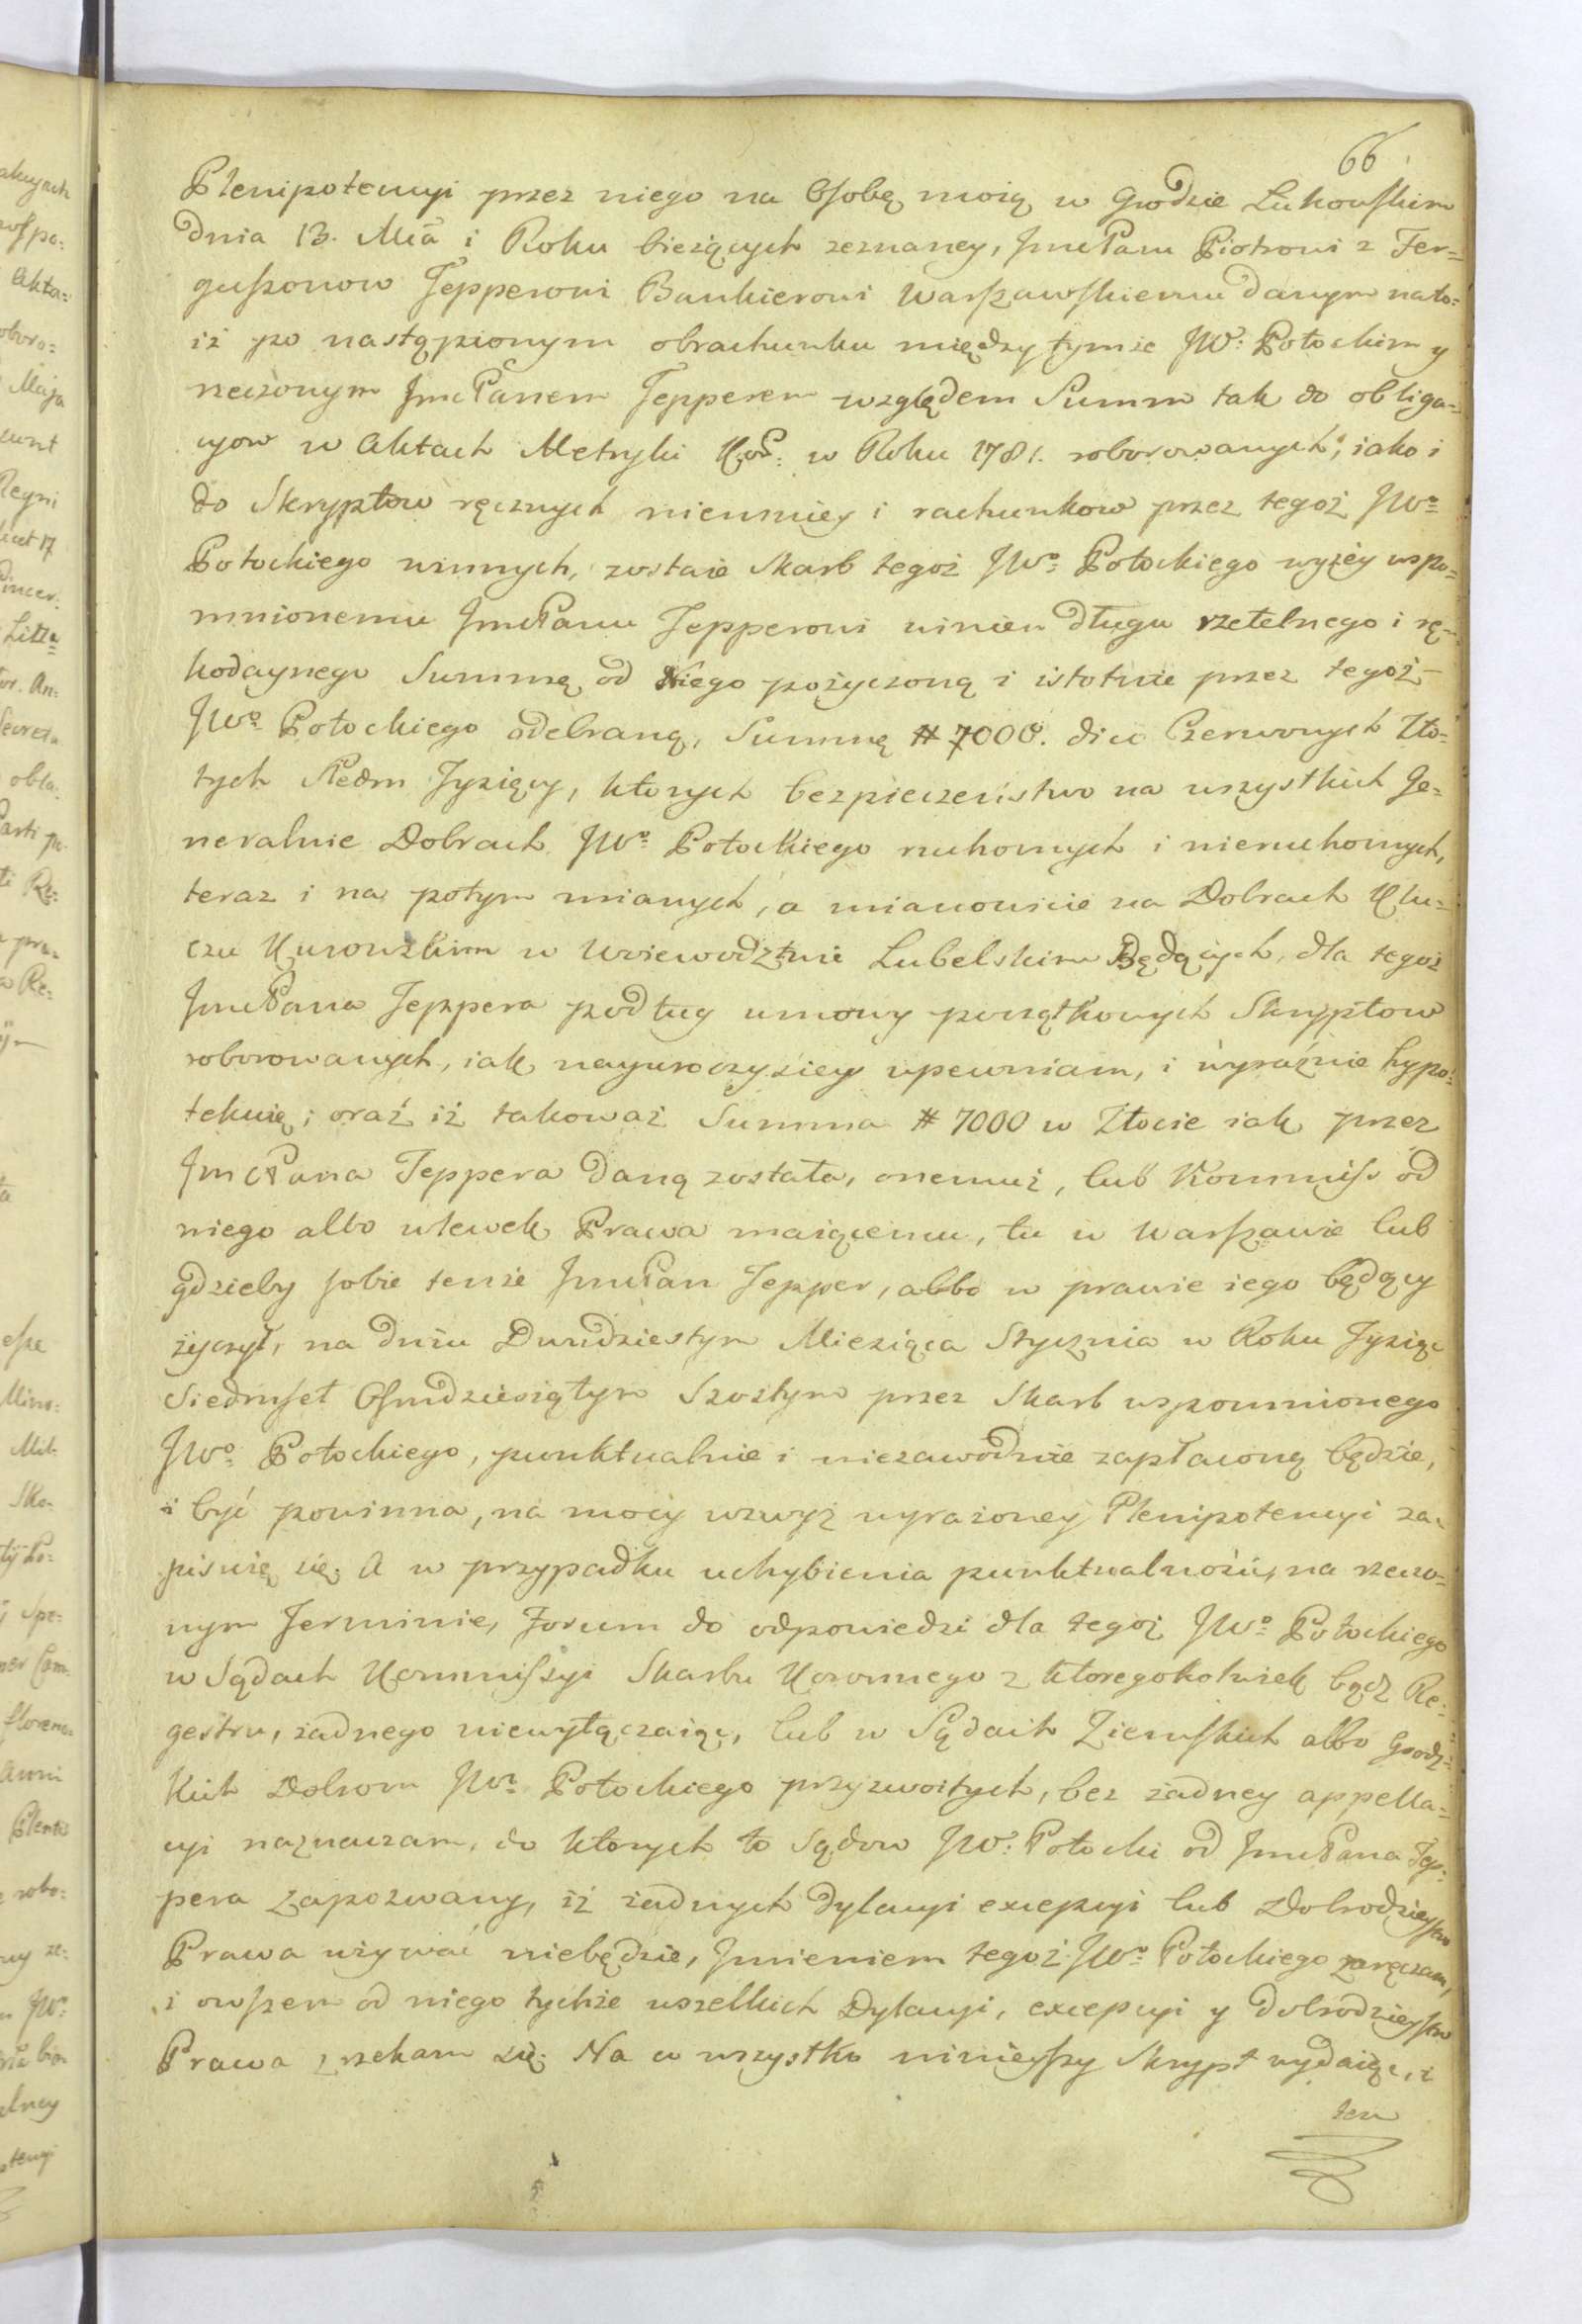 66
Plenipotencyi przez niego na Osobę moią w Grodzie Łukowskim
dnia 13. Mca i Roku bieżących zeznaney, JmcPanu Piotrowi z Fer=
gussonow Tepperowi Bankierowi Warszawskiemu danym na to=
iż po nastąpionym obrachunku między tymże JW: Potockim y
rzeczonym JmcPanem Tepperem względem Summ tak do obliga=
cyow w Aktach Metryki Kor: w Roku 1781. roborowanych, iako i
do Skryptow ręcznych niemniey i rachunkow przez tegoż JWo=
Potockiego winnych, zostaie Skarb tegoż JWo= Potockiego wyżey wspo=
mnionemu JmcPanu Tepperowi winien długu rzetelnego i rę=
kodaynego Summę od Niego pożyczoną i istotnie przez tegoż-
JWo= Potockiego odebraną, Summę # 7000. dico Czerwonych Zło=
tych Siedm Tysięcy, ktorych bezpieczeństwo na wszystkich Ge=
neralnie Dobrach JWo= Potockiego ruchomych i nieruchomych,
teraz i na potym mianych, a mianowicie na Dobrach Klu=
czu Kurowskim w Woiewodztwie Lubelskim Będących, dla tegoż
JmcPana Teppera podług umowy początkowych Skryptow
roborowanych, iak nayuroczyściey upewniam, i wyraźnie hypo=
tekuię; oraz iż takoważ Summa # 7000 w Złocie iak przez
JmcPana Teppera daną została, onemuż, lub Kommiss od
niego albo wlewek Prawa maiącemu, tu w Warszawie lub
gdzieby sobie tenże JmcPan Tepper, albo w prawie iego będący
życzył, na dniu Dwudziestym Miesiąca Stycznia w Roku Tysiąc
Siedmset Osmdziesiątym Szostym przez Skarb wspomnionego
JWo= Potockiego, punktualnie i niezawodnie zapłaconą będzie,
i być powinna, na mocy wzwyż wyrażoney Plenipotencyi za=
pisuię się. A w przypadku uchybienia punktualności, na rzeczo=
nym Terminie, Forum do odpowiedzi dla tegoż JWo= Potockiego
w Sądach Kommissyi Skarbu Koronnego z ktoregokolwiek bądź Re=
gestru, żadnego niewyłączaiąc, lub w Sądach Ziemskich albo Grodz=
kich Dobrom JWo= Potockiego przyzwoitych, bez żadney appella=
cyi naznaczam, do ktorych to Sądow JW: Potocki od JmcPana Tep=
pera zapozwany, iż żadnych Dylacyi excepcyi lub Dobrodzieystw
Prawa używać niebędzie, Jmieniem tegoż JWo= Potockiego zaręczam,
i owszem od niego tychże wszelkich Dylacyi, excepcyi y dobrodzieystw
Prawa zrzekam się. Na co wszystko ninieyszy Skrypt wydaiąc, i
ten